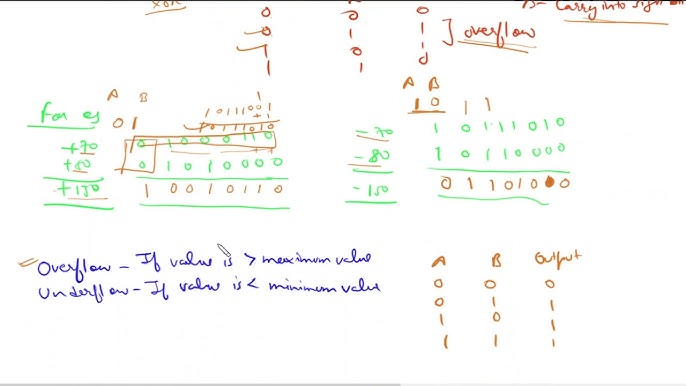 XOR
0 0
0 1
1 1
1 1 0
B- Carry into sign
] overflow
For eg
A B
0 1
1
1 0 1 1 1 0 0 1
+1
1 0 1 1 1 0 1 0
+70 0 1 0 0 0 1 1 0
+80 0 1 0 1 0 0 0 0
+150 1 0 0 1 0 1 1 0
A B
1 0 1 1
-70 1 0 1 1 1 0 1 0
-80 1 0 1 1 0 0 0 0
-150 0 1 1 0 1 0 0
Overflow - If value is > maximum value
Underflow - If value is < minimum value
A B Output
0 0 0
0 1 1
1 0 1
1 1 1